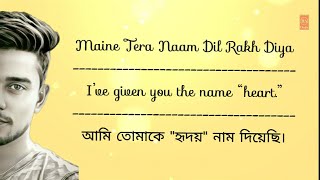 Maine Tera Naam Dil Rakh Diya
I've given you the name "heart."
আমি তোমাকে "হৃদয়" নাম দিয়েছি।